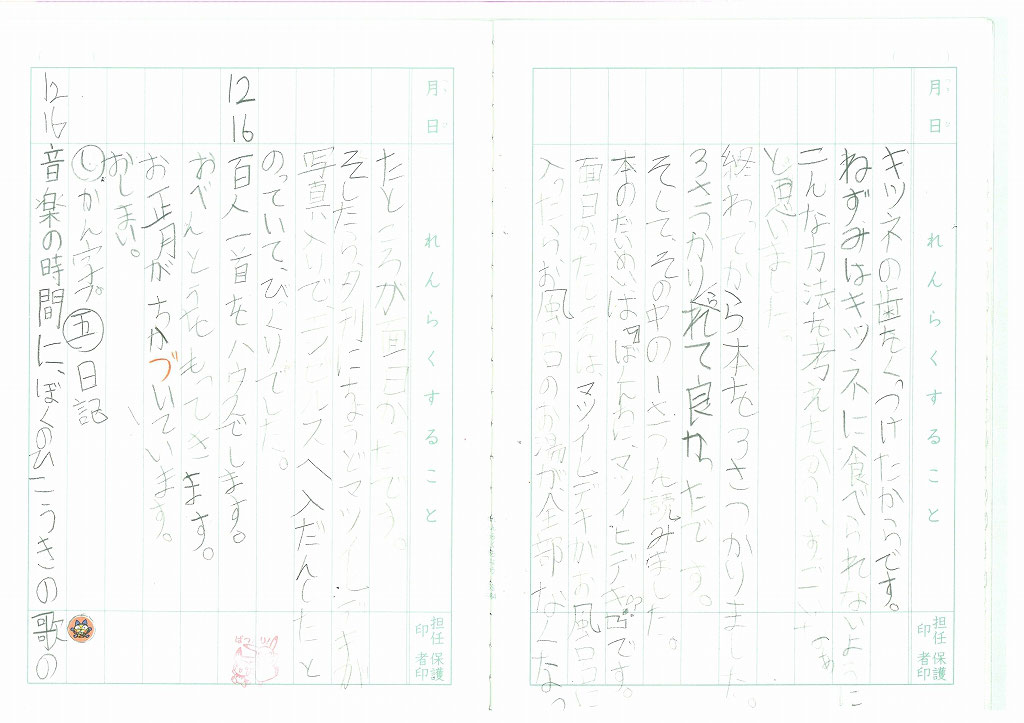 月
日
れんらくすること
担任印
保護者印
キツネの歯をくっつけたからです。
ねずみはキツネに食べられないように
こんな方法を考えたから、すごいなあ
と思いました。
終わってから本を3さつかりました。
3さつかりられて良かったです。
そして、その中の一さつを読みました。
本のだいめいは「ほんわに、マツイヒデキ!?」です。
面白かったところは、マツイヒデキがお風ロに
入ったらお風ロのお湯が、全部なくなっ
月
日
れんらくすること
担任印
保護者印
たところが面白かったです。
そしたら、夕刊にちょうどマツイヒデキが
写真入りで、エンゼルスへ入だんしたと
のっていて、びっくりでした。
12 16 百人一首をハウスでします。
おべんとうをもってきます。
お正月がちかづいています。
おしまい。
しかん字プ。五日記
12 16 音楽の時間に、ぼくのひこうきの歌の